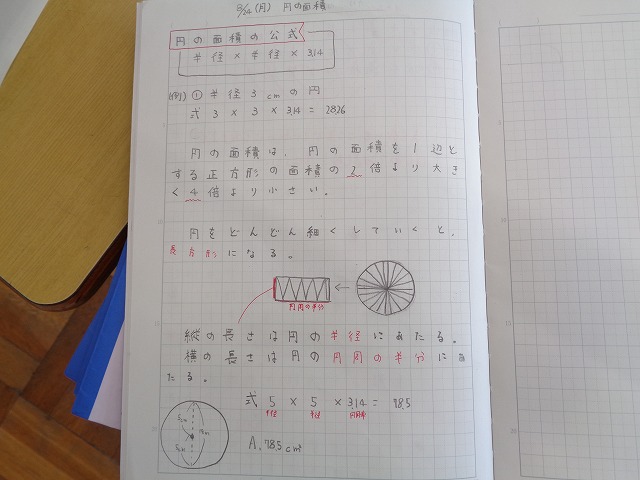 8/24(月) 円の面積
円の面積の公式
半径×半径×3.14
(例)① 半径3cmの円
式 3×3×3.14=28.26
円の面積は、円の面積を1辺と
する正方形の面積の2倍より大き
く4倍より小さい。
円をどんどん細くしていくと、
長方形になる。
円周の半分
縦の長さは円の半径にあたる。
横の長さは円の円周の半分にあ
たる。
式 5×5×3.14=78.5
半径 半径 円周率
5cm
5cm
A.78.5cm²